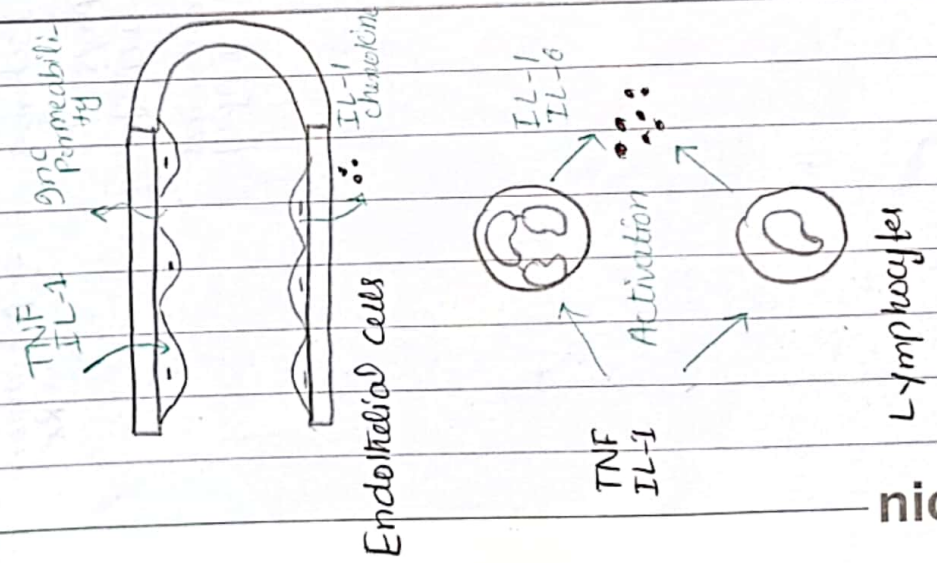 TNF
IL-1
Inc
Permeabili-
ty
IL-1
chemokine
Endothelial cells
TNF
IL-1
Activation
IL-1
IL-6
Lymphocytes
nic